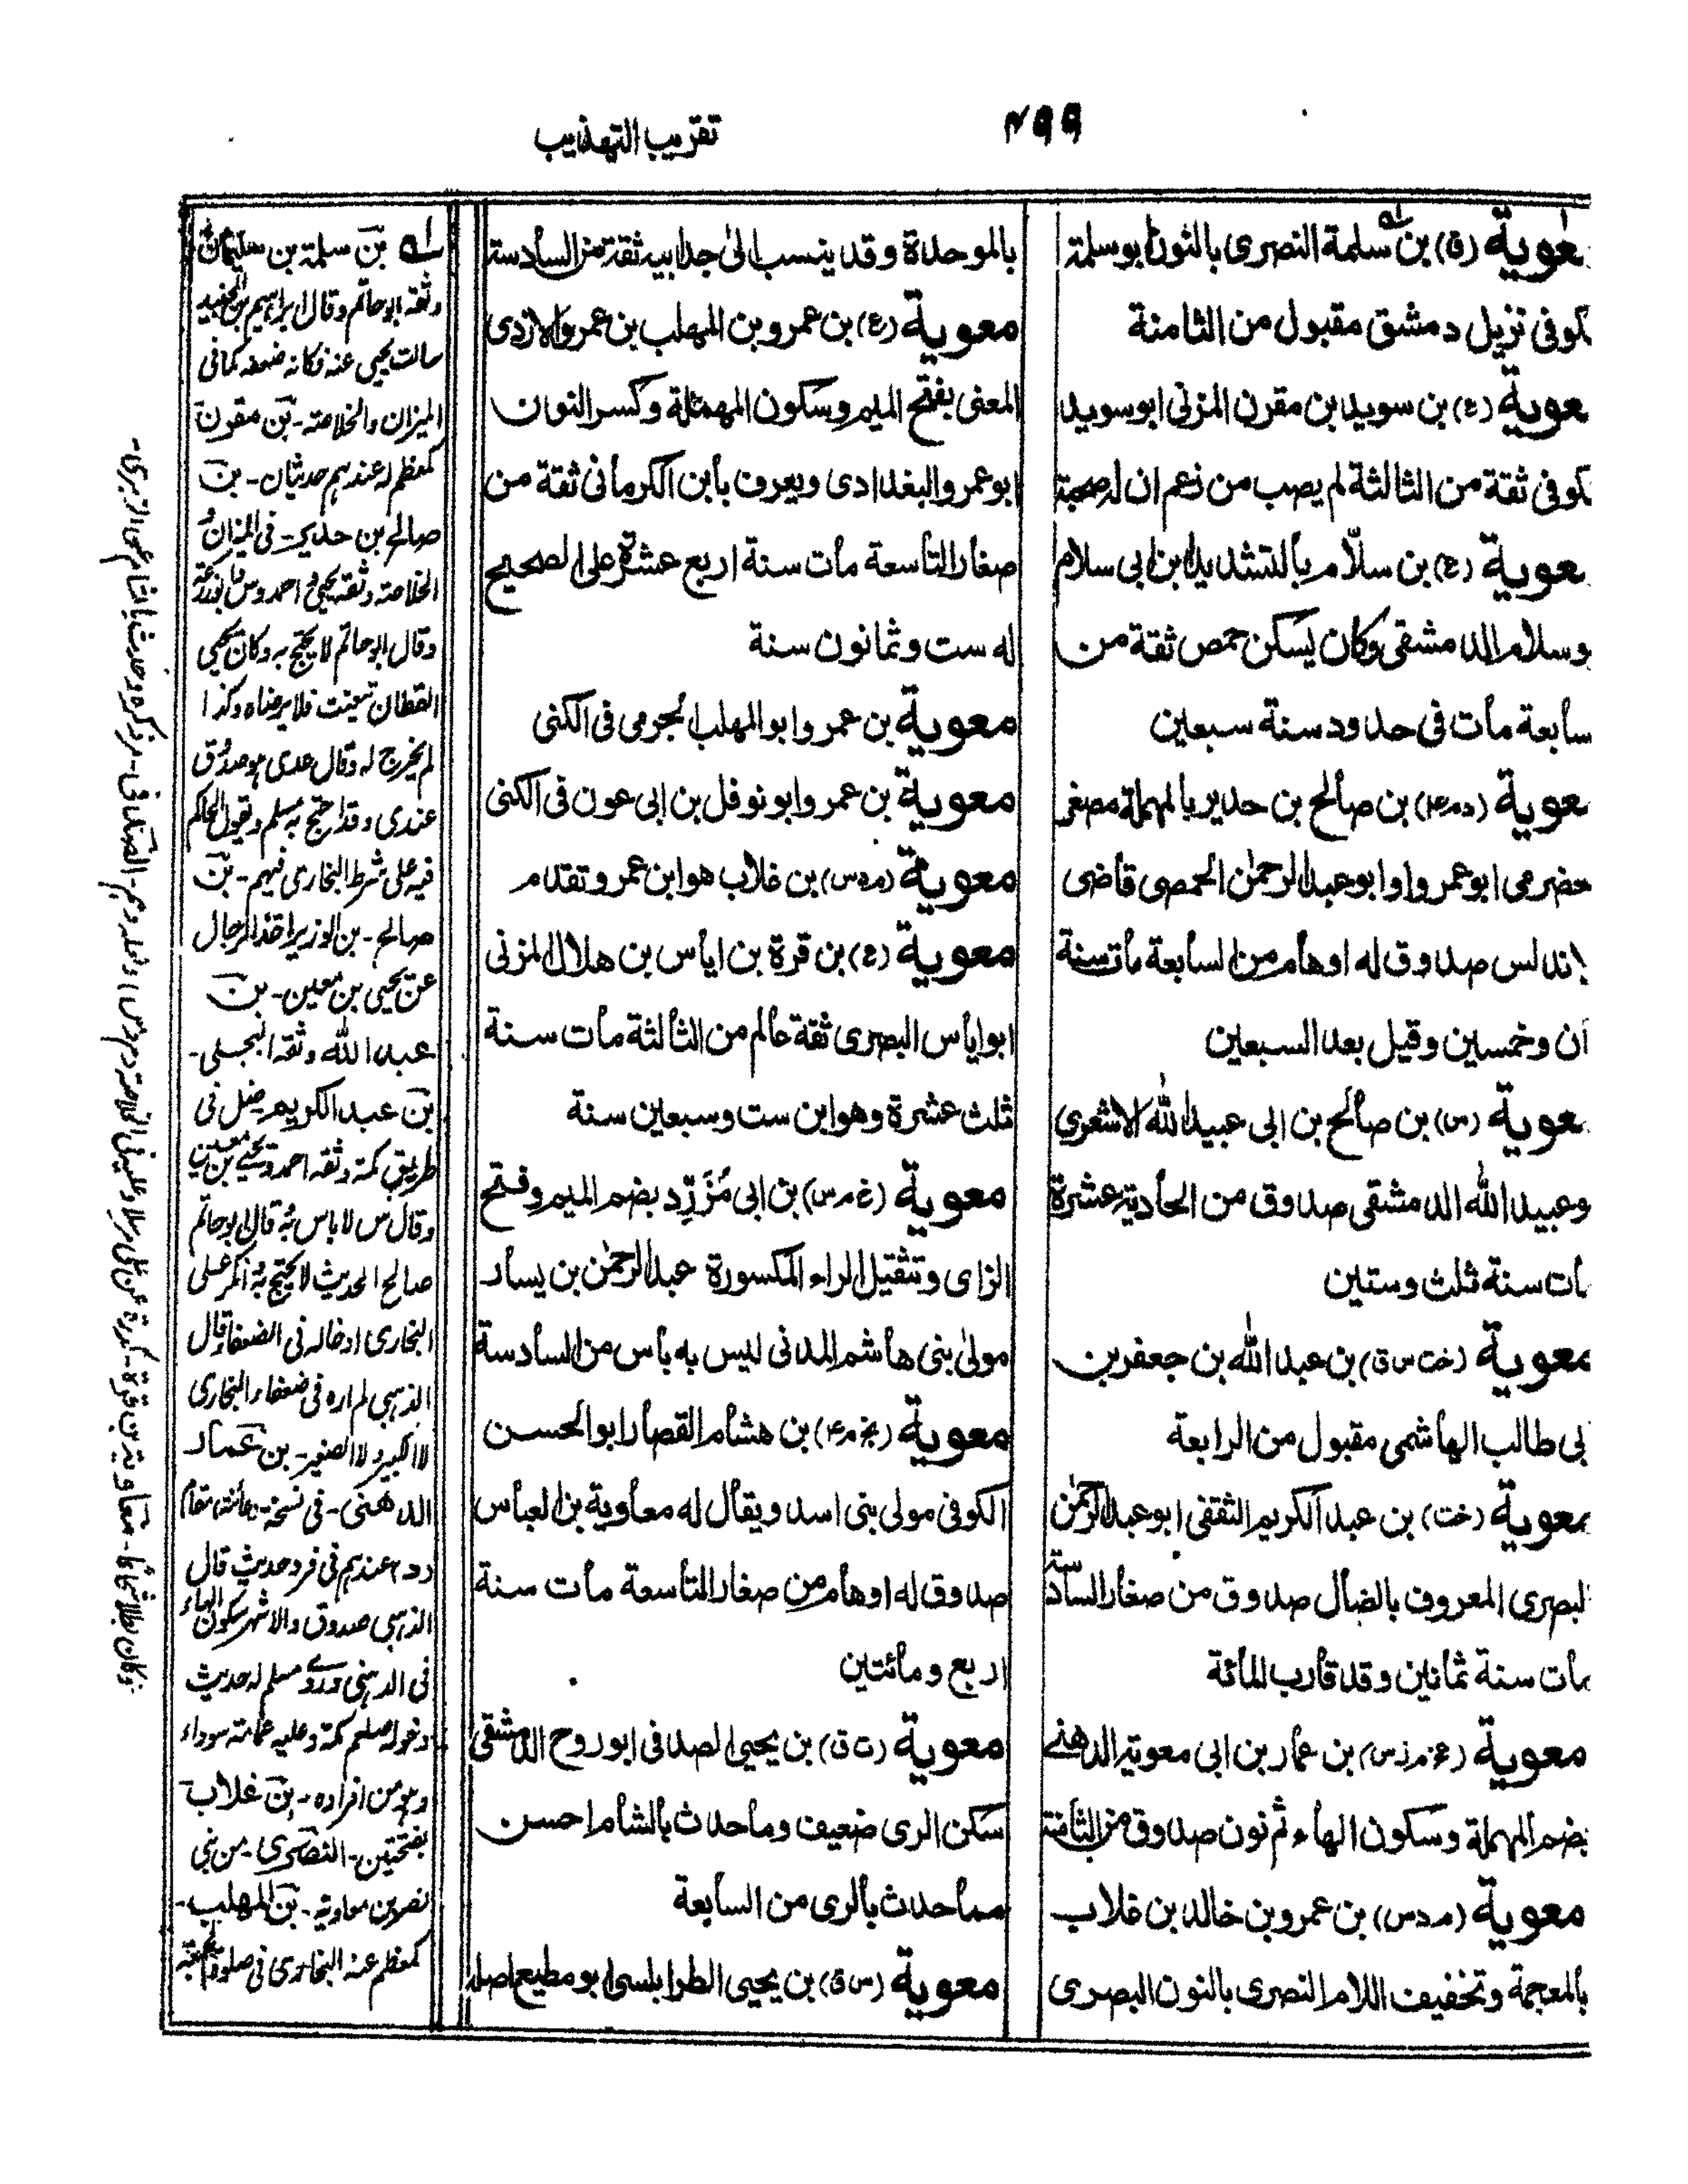 ۴۹۹
تقريب التهذيب
عوية (ق) بن سلمة النصرى بالنون ابو سلمة
كوفى نزيل دمشق مقبول من الثامنة
عوية (ع) بن سويد بن مقرن المزنى ابو سويد
كوفى ثقة من الثالثة لم يصب من زعم ان له صحبة
عوية (ع) بن سلّام بالتشديد ابن ابى سلام
وسلام الدمشقى وكان يسكن حمص ثقة من
سابعة مات فى حدود سنة سبعين
عوية (دم۴) بن صالح بن حدير بالمهملة مصغر
حضرمى ابو عمرو او ابو عبد الرحمٰن الحمصى قاضى
اندلس صدوق له اوهام من السابعة مات سنة
ان وخمسين وقيل بعد السبعين
عوية (س) بن صالح بن ابى عبيد الله الاشعرى
وعبيد الله الدمشقى صدوق من الحادية عشرة
ات سنة ثلث وستين
معوية (خت س ق) بن عبد الله بن جعفر بن
بى طالب الهاشمى مقبول من الرابعة
معوية (خت) بن عبد الكريم الثقفى ابو عبد الرحمٰن
لبصرى المعروف بالضال صدوق من صغار السادسة
مات سنة ثمانين وقد قارب المائة
معوية بن عمار بن ابى معوية الدهنے
بضم المهملة وسكون الهاء ثم نون صدوق من الثامنة
معوية (م د س) بن عمرو بن خالد بن غلاب
بالمعجمة وتخفيف اللام النصرى بالنون البصرى
بالموحدة وقد ينسب الىٰ جد ابيه ثقة من السادسة
معوية (ع) بن عمرو بن المهلب بن عمرو الازدى
المعنى بفتح الميم وسكون المهملة وكسر النون
ابو عمرو البغدادى ويعرف بابن الكرمانى ثقة من
صغار التاسعة مات سنة اربع عشرة على الصحيح
له ست وثمانون سنة
معوية بن عمرو ابو المهلب الجرمى فى الكنى
معوية بن عمرو ابو نوفل بن ابى عون فى الكنى
معوية (م د س) بن غلاب هو ابن عمرو تقدم
معوية (ع) بن قرة بن اياس بن هلال المزنى
ابو اياس البصرى ثقة عالم من الثالثة مات سنة
ثلث عشرة وهو ابن ست وسبعين سنة
معوية (خ م س) بن ابى مُزَرِّد بضم الميم وفتح
الزاى وتثقيل الراء المكسورة عبد الرحمٰن بن يسار
مولىٰ بنى هاشم المدنى ليس به باس من السادسة
معوية (بخ م۴) بن هشام القصار ابو الحسن
الكوفى مولى بنى اسد ويقال له معاوية بن العباس
صدوق له اوهام من صغار التاسعة مات سنة
اربع ومائتين
معوية (ت ق) بن يحيى الصدفى ابو روح الدمشقى
سكن الرى ضعيف وما حدث بالشام احسن
مما حدث بالرى من السابعة
معوية (س ق) بن يحيى الطرابلسى ابو مطيع اصله
بن سلمة بن سليمان
وثقه ابو حاتم وقال ابراهيم بن الجنيد
سالت يحيى عنه فكانه ضعفه كما فى
الميزان والخلاصة - بن مقرن
كمعظم له عندهم حديثان - بن
صالح بن حدير - فى الميزان و
الخلاصة وثقه يحيى و احمد و س و ابو زرعة
وقال ابو حاتم لا يحتج به وكان يحيى
القطان يتعنت فلا يرضاه وكذا
لم يخرج له وقال عدى هو صدوق
عندى وقد احتج به مسلم ويقول الحاكم
فيه على شرط البخارى فيهم - بن
صالح - بن الوزير اخذ الرجال
عن يحيى بن معين - بن
عبد الله وثقه العجلى -
بن عبد الكريم ضل فى
طريق مكة وثقه احمد و يحيى بن معين
وقال س لا باس به قال ابو حاتم
صالح الحديث لا يحتج به انكر على
البخارى ادخاله فى الضعفاء وقال
الذهبى لم اره فى ضعفاء البخارى
لا الكبير ولا الصغير - بن عمار
الدهنى - فى نسخة -
عندهم فى فرد حديث قال
الذهبى صدوق والاشهر سكون الهاء
فى الدهنى وروے مسلم له حديث
دخوله صلعم مكة وعليه عمامة سوداء
وهو من افراده - بن غلاب
بفتحتين - النصرى - من بنى
نصر بن معاوية - بن المهلب -
كمعظم عنه البخارى فى صلوة الجمعة